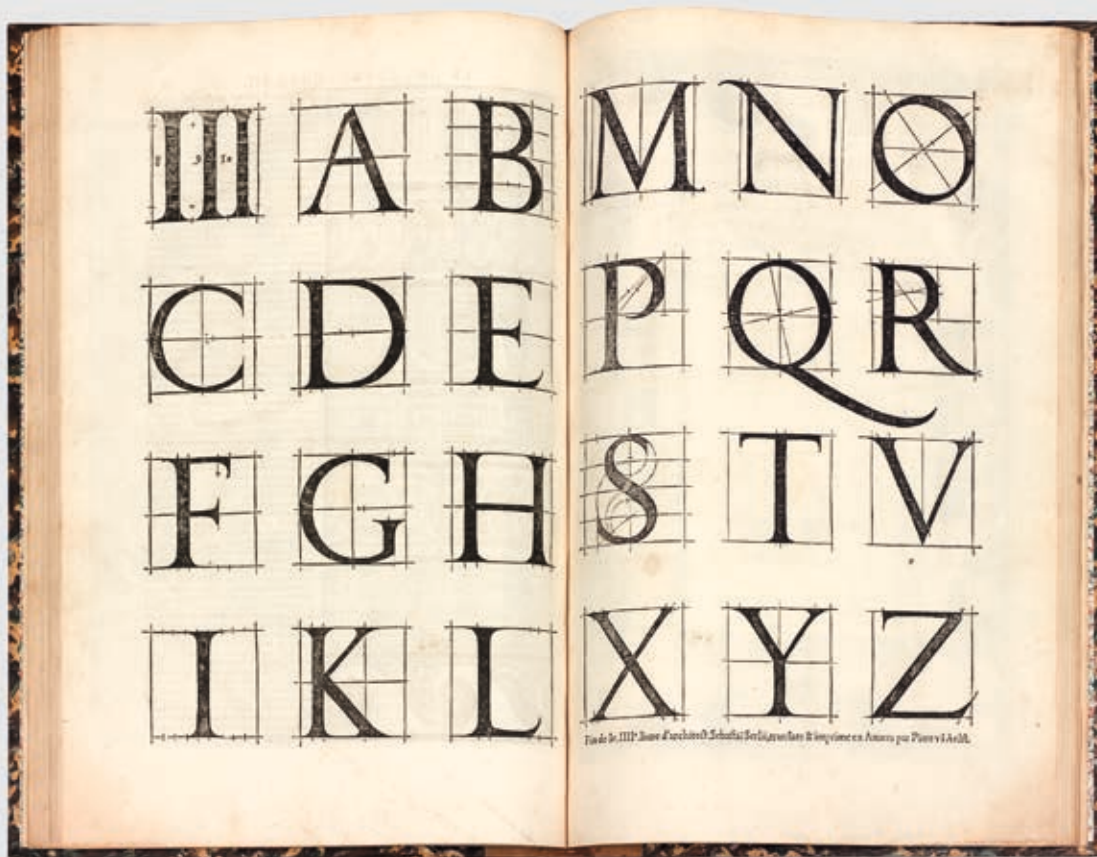 III A B
8 9 10
C D E
F G H
I K L
M N O
P Q R
S T V
X Y Z
Fin de le IIIIe. liure d'architect. Serlii, translaty & imprime en Anuers par Piere vā Aelst.